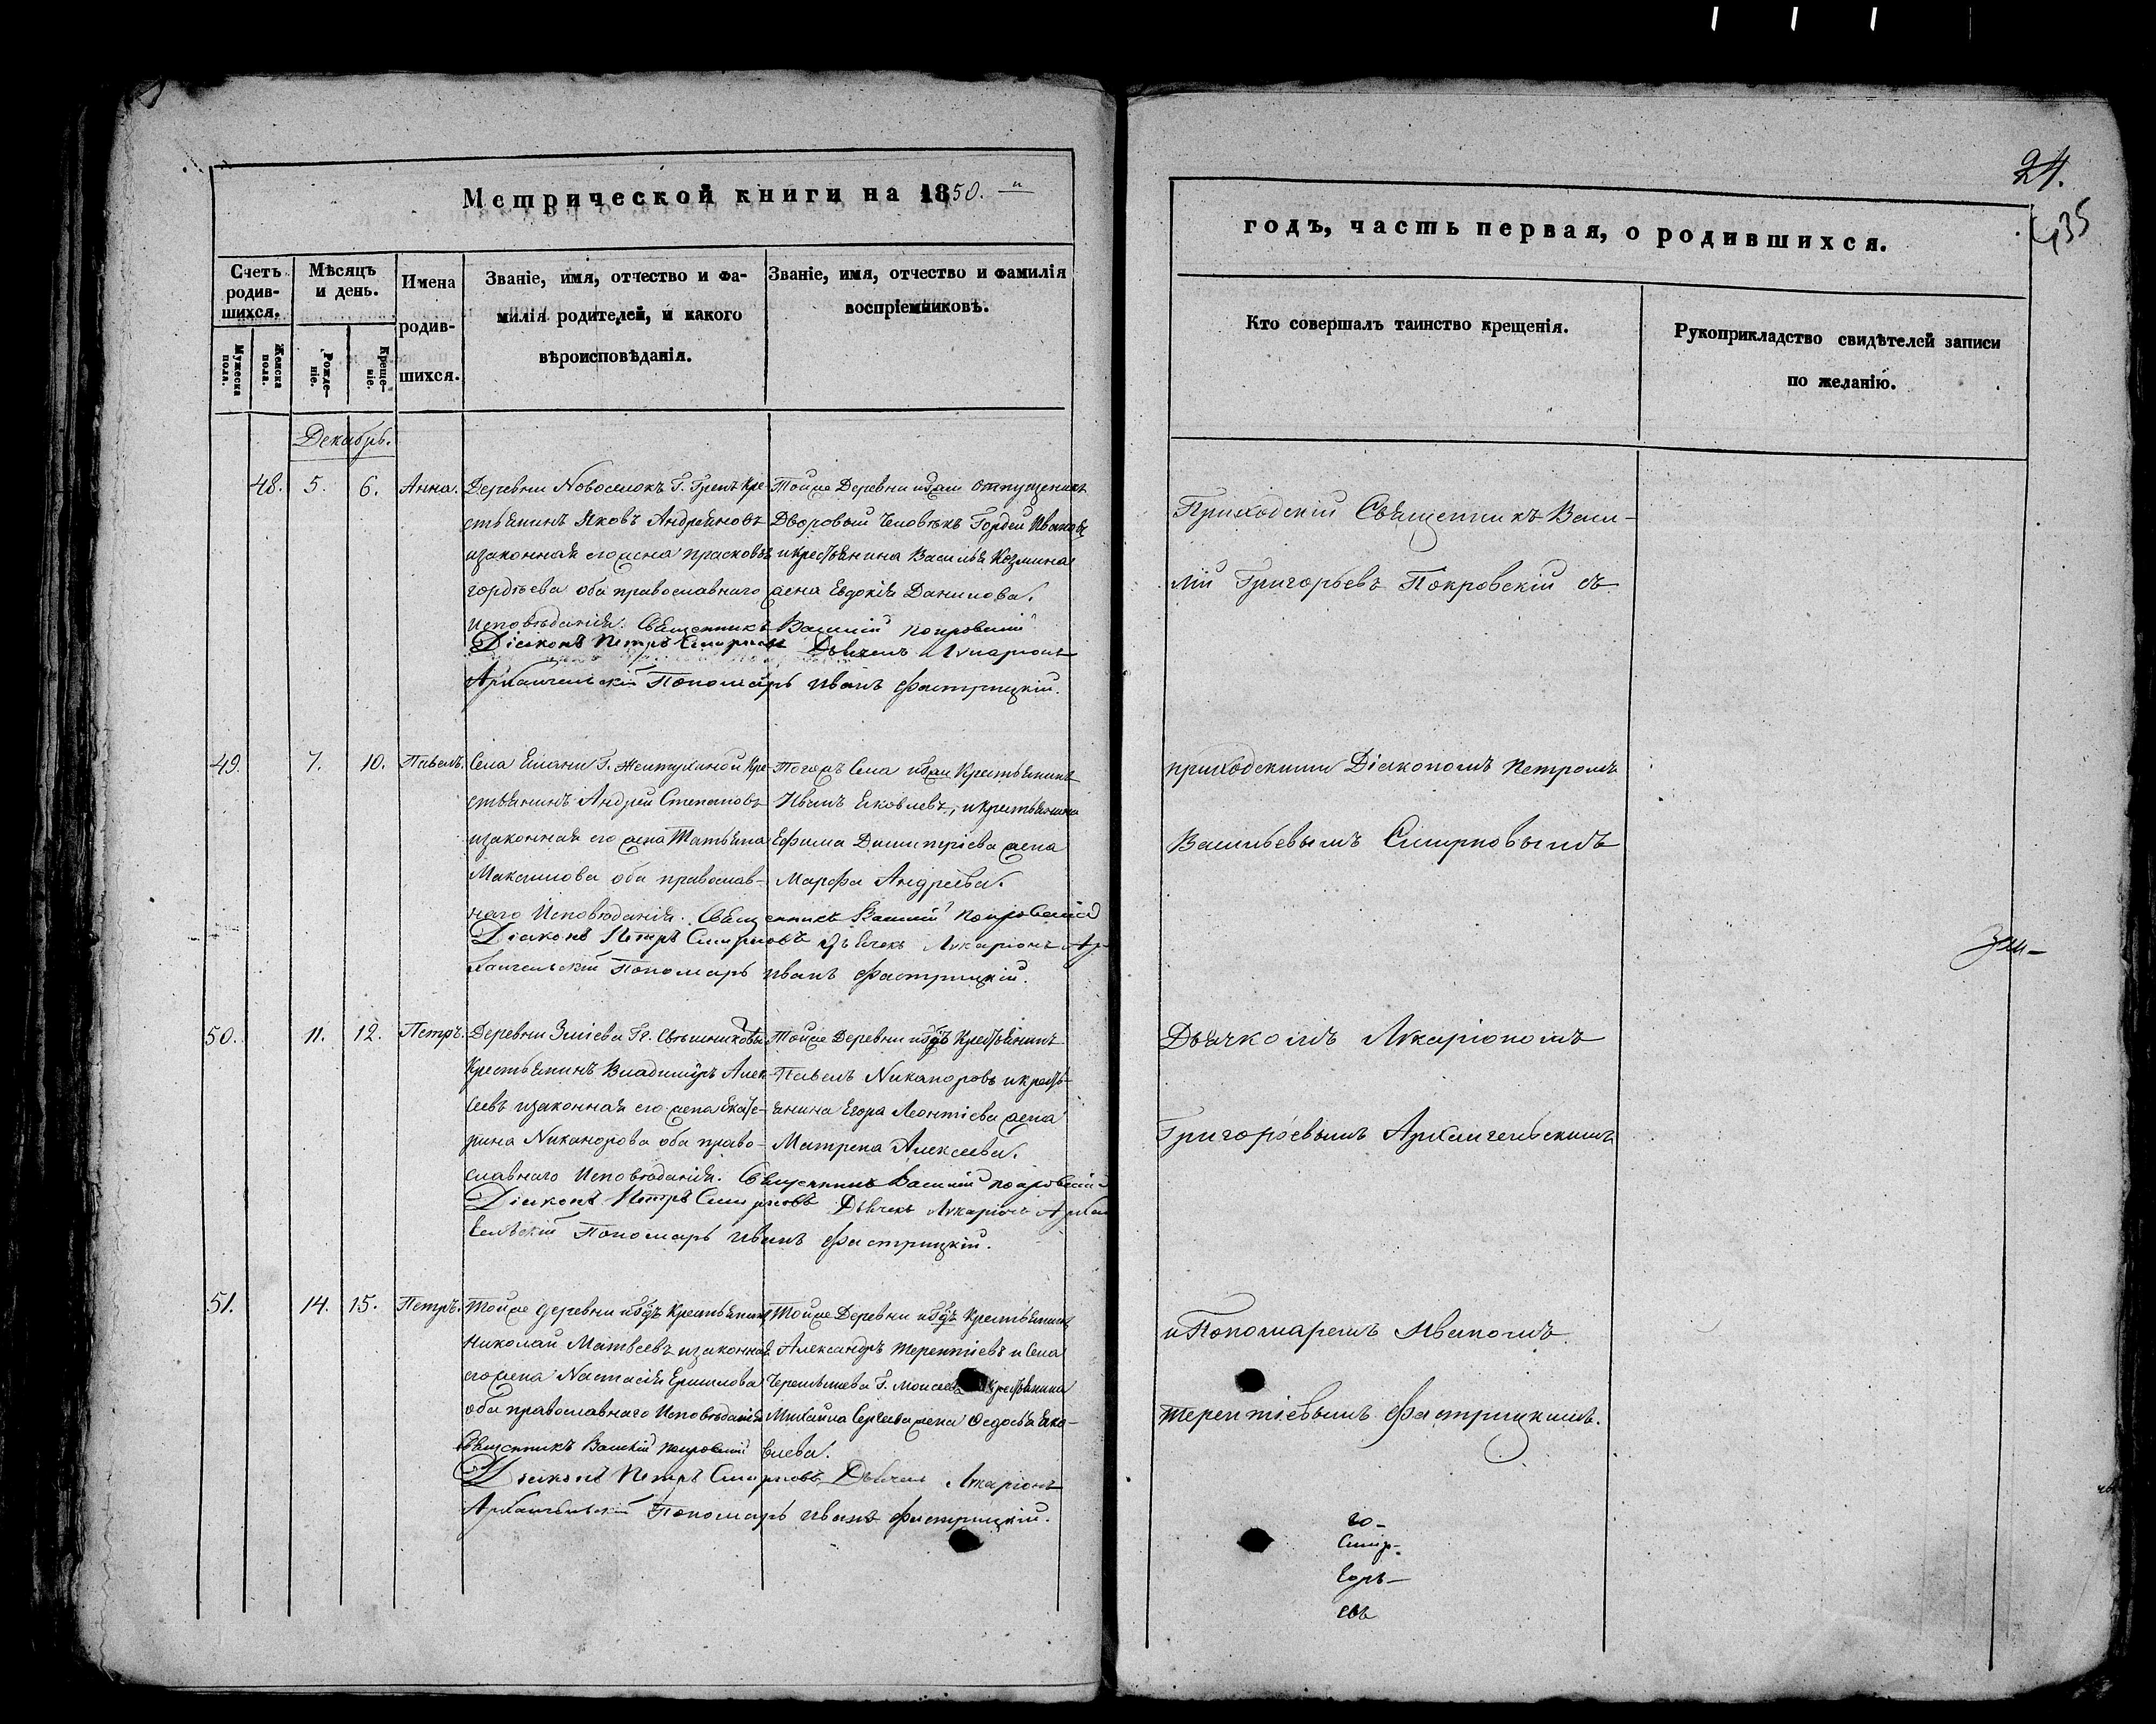 Метрической книги на 1850.й
Счетъ родившихся.
Мужеска пола.
Женска пола.
Мѣсяцъ и день.
Рожденіе.
Крещеніе.
Имена родившихся.
Званіе, имя, отчество и фамилія родителей, и какого
вѣроисповѣданія.
Званіе, имя, отчество и фамилія
воспріемниковъ.
Декабрь.
48. 5. 6. Анна.
Деревни Новоселокъ Г. Кре-
стьянинъ Яковъ Андреяновъ
и законная его жена Прасковья
Гордѣева оба православнаго
исповѣданія.
Тойже Деревни отпущеникъ
Дворовый Человѣкъ Гордей Ивановъ
и крестьянина Василья Козмина
жена Евдокія Данилова.
Священникъ Василій Покровский
Діаконъ Петръ Смирновъ Дьячекъ Иларіонъ
Архангельскій Пономарь Иванъ Фастрицкій.
49. 7. 10. Павелъ.
Села Г. Желтухиной Кре-
стьянинъ Андрей Степановъ
и законная его жена Татьяна
Максимова оба православ-
наго Исповѣданія.
Тогожъ Села Крестьянинъ
Иванъ Яковлевъ, и крестьянина
Ефима Димитріева жена
Марфа Андреева.
Священникъ Василий Покровский
Діаконъ Петръ Смирновъ Дьячекъ Иларіонъ Ар-
хангельскій Пономарь Иванъ Фастрицкій.
50. 11. 12. Петръ.
Деревни Зміева Гг.
Крестьянинъ Владимиръ Алек-
сеевъ и законная его жена Екате-
рина Никанорова оба право-
славнаго Исповѣданія.
Тойже Деревни Крестьянинъ
Павелъ Никаноровъ и кресть-
янина Егора Леонтіева жена
Матрена Алексеева.
Священникъ Василий Покровский
Діаконъ Петръ Смирновъ Дьячекъ Иларіонъ Архан
гельскій Пономарь Иванъ Фастрицкій.
51. 14. 15. Петръ.
Тойже деревни Крестьянинъ
Николай Матвеевъ и законная
его жена Настасія Ермилова
оба православнаго Исповѣданія
Тойже Деревни Крестьянинъ
Александръ Терентіевъ и Села
Г. Моисеева крестьянина
Михаила Сергеева жена Федосья Яко-
влева.
Священникъ Василій Покровский
Діаконъ Петръ Смирновъ Дьячекъ Иларіонъ
Архангельскій Пономарь Иванъ Фастрицкій.
24.
435
годъ, часть первая, о родившихся.
Кто совершалъ таинство крещенія.
Рукоприкладство свидѣтелей записи
по желанію.
Приходскій Священникъ Васи-
лій Григорьевъ Покровскій съ
приходскими Діакономъ Петромъ
Васильевымъ Смирновымъ
Дьячкомъ Иларіономъ
Григорьевымъ Архангельскимъ
и Пономаремъ Иваномъ
Терентіевымъ Фастрицкимъ.
го-
Смир-